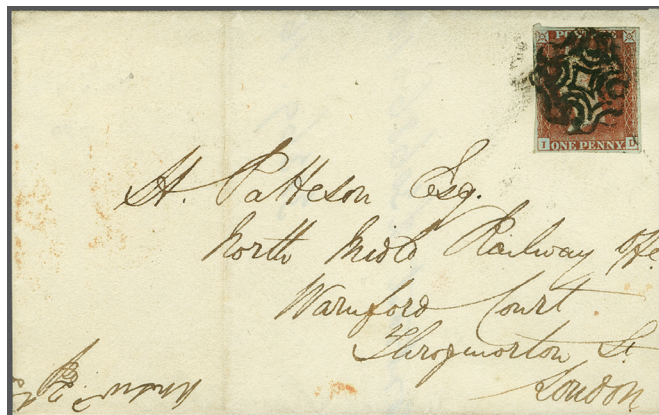 POSTAGE
I D
ONE PENNY
H. Patteson Esq.
North Midld Railway Offe
Warnford Court
Throgmorton St
London